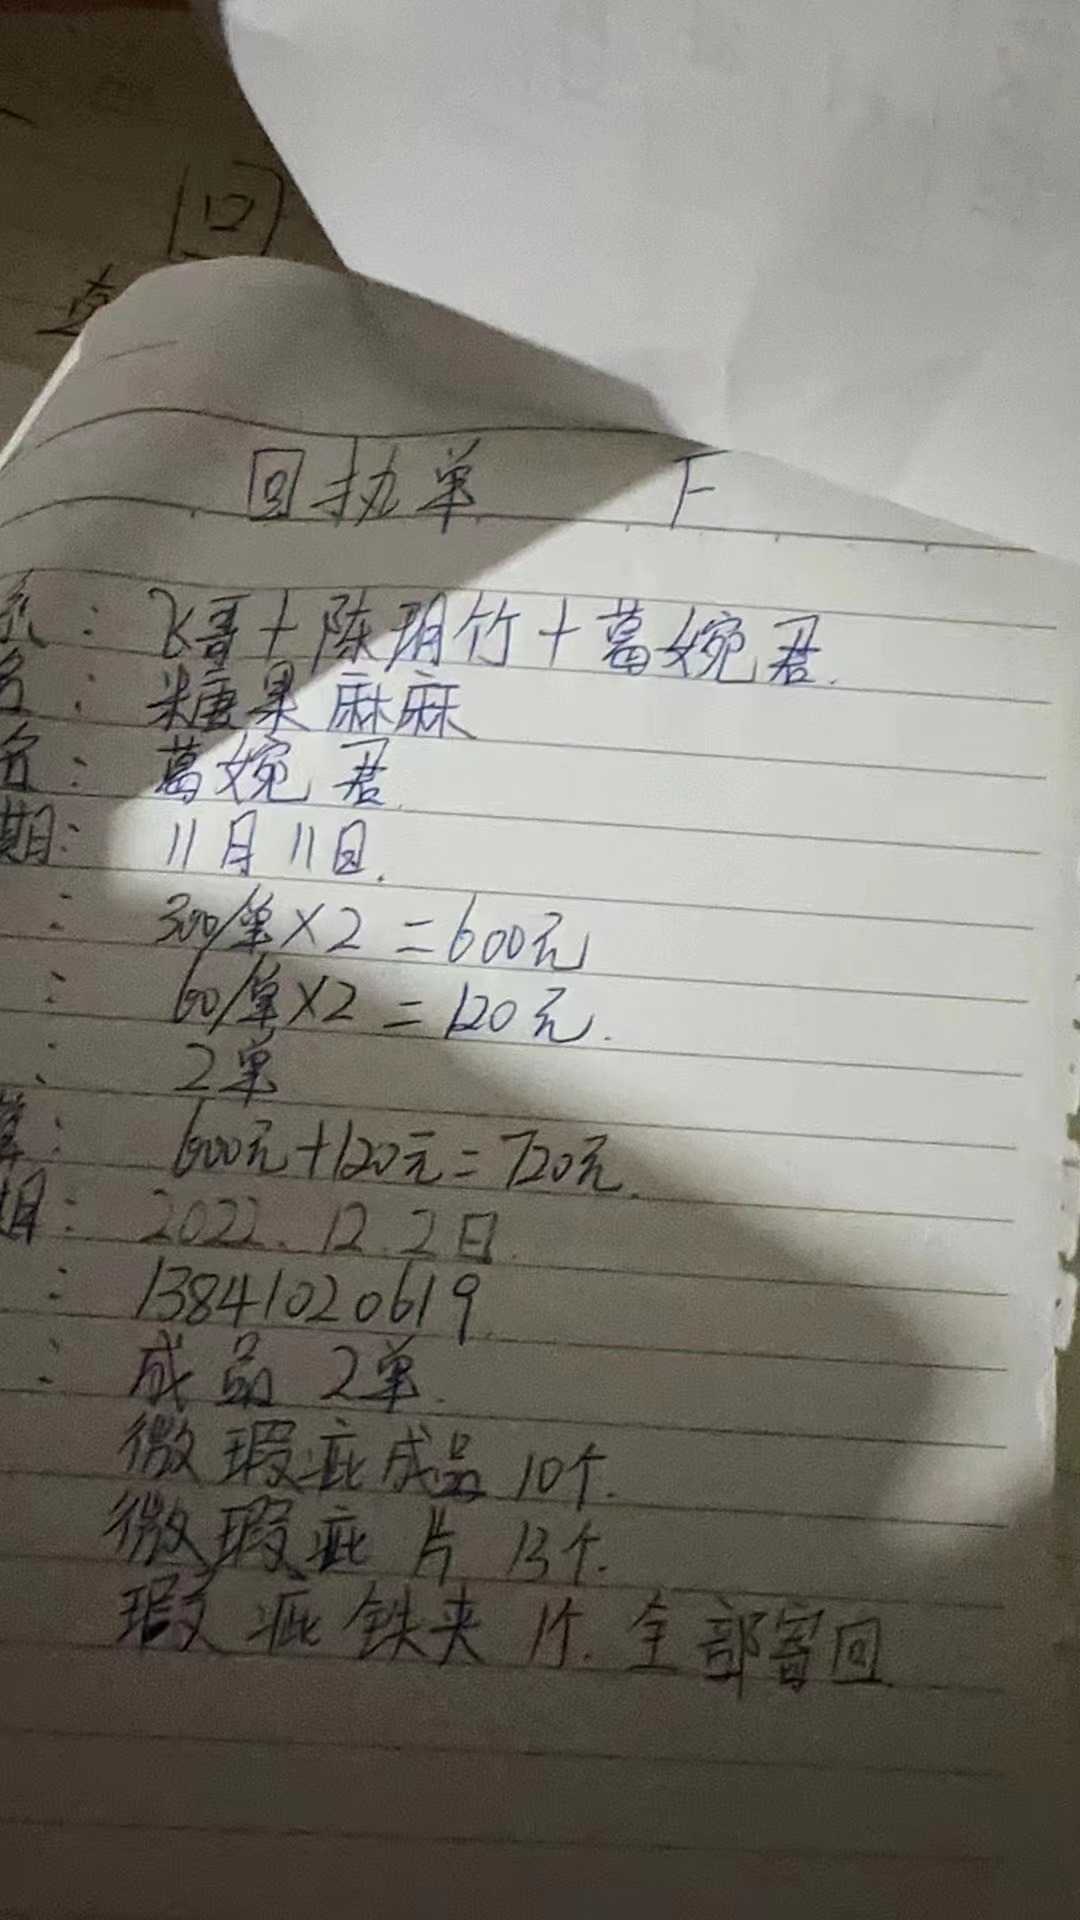 回
回执单 F
系：飞哥+陈玥竹+葛婉君.
名：糖果麻麻
名：葛婉君.
期：11月11日.
：300/单×2=600元
：60/单×2=120元.
：2单
算：600元+120元=720元.
期：2022.12.2日.
：13841020619.
：成品 2单.
微瑕疵成品 10个.
微瑕疵片 13个.
瑕疵铁夹 1个. 全部寄回